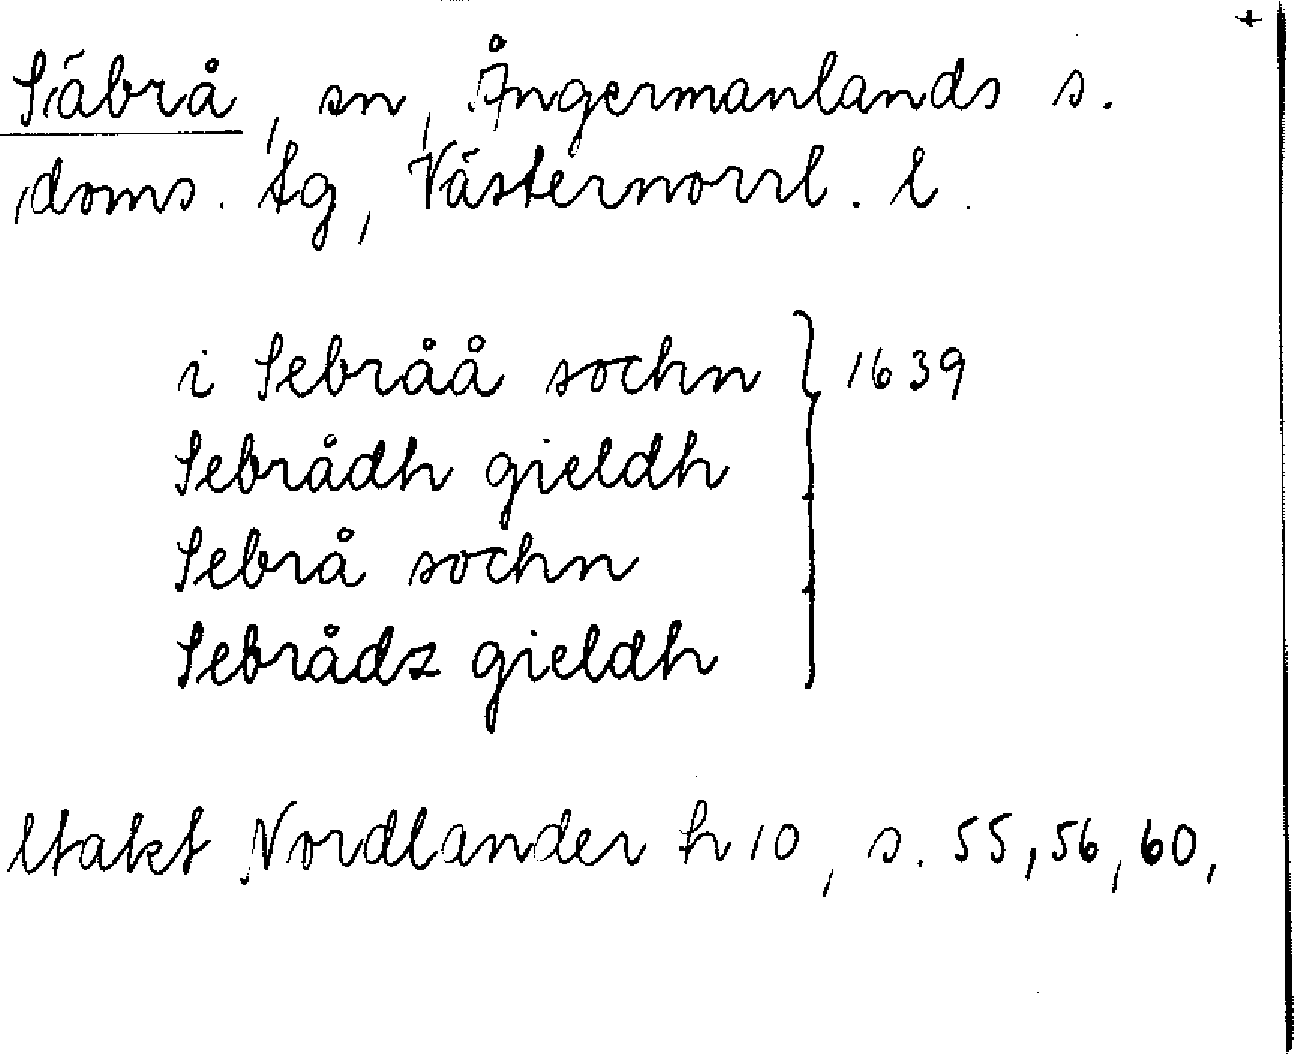 +
Säbrå, sn, Ångermanlands s.
doms. tg, Västernorrl. l.
i Sebråå sochn } 1639
Sebrådh gieldh
Sebrå sochn
Sebrådz gieldh
Utakt Nordlander h 10, s. 55, 56, 60,